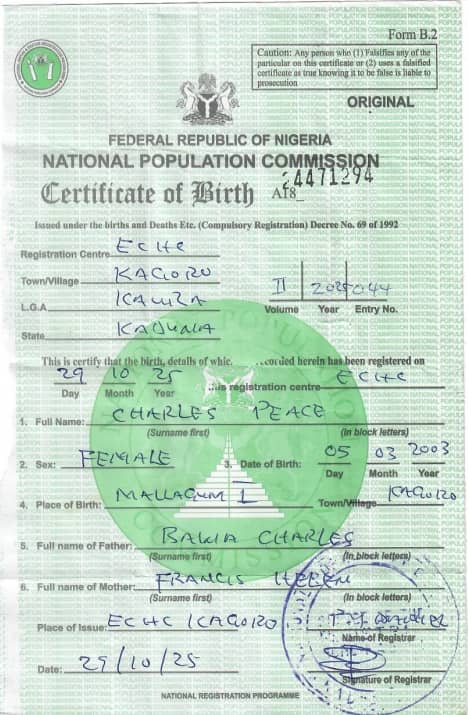 Form B.2
Caution: Any person who (1) Falsifies any of the
particular on this certificate or (2) uses a falsified
certificate as true knowing it to be false is liable to
prosecution
ORIGINAL
FEDERAL REPUBLIC OF NIGERIA
NATIONAL POPULATION COMMISSION
Certificate of Birth A18_ 24471294
Issued under the births and Deaths Etc. (Compulsory Registration) Decree No. 69 of 1992
Registration Centre ECHC
Town/Village KAGORO
L.G.A KAURA
II 2025 044
Volume Year Entry No.
State KADUNA
This is certify that the birth, details of whic. corded herein has been registered on
29 10 25 this registration centre ECHC
Day Month Year
1. Full Name: CHARLES PEACE
(Surname first) (In block letters)
2. Sex: FEMALE 3. Date of Birth: 05 03 2003
Day Month Year
4. Place of Birth: MALLAGUM I Town/Village KAGORO
5. Full name of Father: BAWA CHARLES
(Surname first) (In block letters)
6. Full name of Mother: FRANCIS HELEN
(Surname first) (In block letters)
Place of Issue: ECHC KAGORO
Name of Registrar
Date: 29/10/25
Signature of Registrar
NATIONAL REGISTRATION PROGRAMME